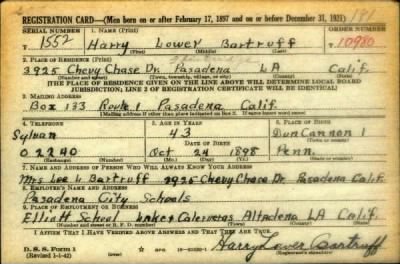 REGISTRATION CARD—(Men born on or after February 17, 1897 and on or before December 31, 1921)
SERIAL NUMBER 1. NAME (Print) ORDER NUMBER
1552 Harry Lower Bartruff 10980
(First) (Middle) (Last)
2. PLACE OF RESIDENCE (Print)
3925 Chevy Chase Dr. Pasadena LA Calif.
(Number and street) (Town, township, village, or city) (County) (State)
[THE PLACE OF RESIDENCE GIVEN ON THE LINE ABOVE WILL DETERMINE LOCAL BOARD
JURISDICTION; LINE 2 OF REGISTRATION CERTIFICATE WILL BE IDENTICAL]
3. MAILING ADDRESS
Box 133 Route 1 Pasadena Calif.
[Mailing address if other than place indicated on line 2. If same insert word same]
4. TELEPHONE 5. AGE IN YEARS 6. PLACE OF BIRTH
Sylvan 43 Duncannon
DATE OF BIRTH
02240 Oct 24 1898 Penn.
(Exchange) (Number) (Mo.) (Day) (Yr.) (State or country)
7. NAME AND ADDRESS OF PERSON WHO WILL ALWAYS KNOW YOUR ADDRESS
Mrs Lee L Bartruff 3925 Chevy Chase Dr Pasadena Calif
8. EMPLOYER'S NAME AND ADDRESS
Pasadena City Schools
9. PLACE OF EMPLOYMENT OR BUSINESS
Elliott School Lake & Calaveras Altadena LA Calif.
(Number and street or R. F. D. number) (Town) (County) (State)
I AFFIRM THAT I HAVE VERIFIED ABOVE ANSWERS AND THAT THEY ARE TRUE.
D. S. S. Form 1
(Revised 1-1-42) Harry Lower Bartruff
(Registrant's signature)